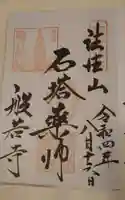 令和四年
八月十六日
法性山
石塔薬師
般若寺